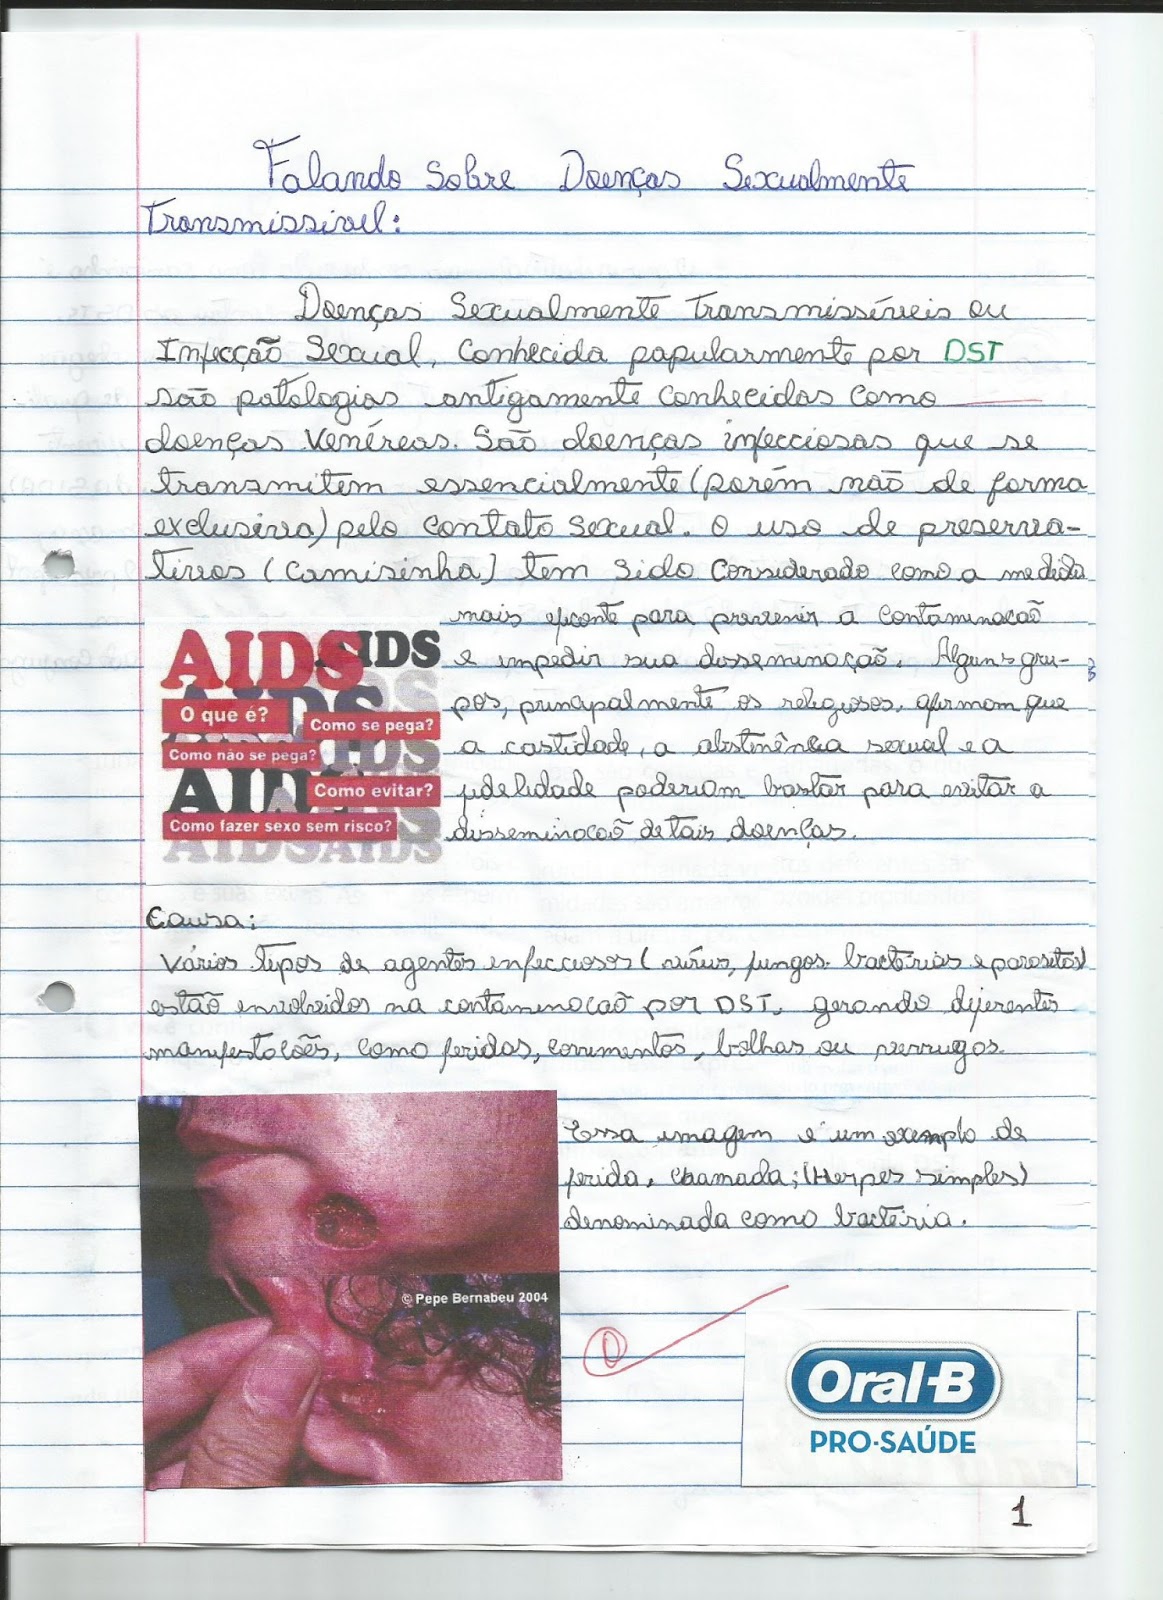 Falando Sobre Doenças Sexualmente
Transmissivel:
Doenças Sexualmente Transmissíveis ou
Infecção Sexual, Conhecida papularmente por DST
são patologias antigamente conhecidas como
doenças Venéreas. São doenças infecciosas que se
transmitem essencialmente (porém não de forma
exclusiva) pelo contato sexual. O uso de preserva-
tivos (camisinha) tem sido considerado como a medida
mais eficente para prevenir a contaminacaõ
e impedir sua disseminação. Alguns gru-
pos, principalmente os religiosos, afirmam que
a castidade, a abstinência sexual e a
fidelidade poderiam bastar para evitar a
disseminacaõ de tais doenças.
AIDS
AIDS
O que é?
Como se pega?
Como não se pega?
Como evitar?
Como fazer sexo sem risco?
AIDSAIDS
Causa:
Vários tipos de agentes infecciosos (vírus, fungos. bactérias e parasitas)
estão envolvidos na contaminacaõ por DST, gerando diferentes
manifestacões, como feridas, corrimentos, bolhas ou verrugas.
Essa imagem é um exemplo de
ferida, chamada; (Herpes simples)
denominada como bactéria.
© Pepe Bernabeu 2004
Oral-B
PRO-SAÚDE
1